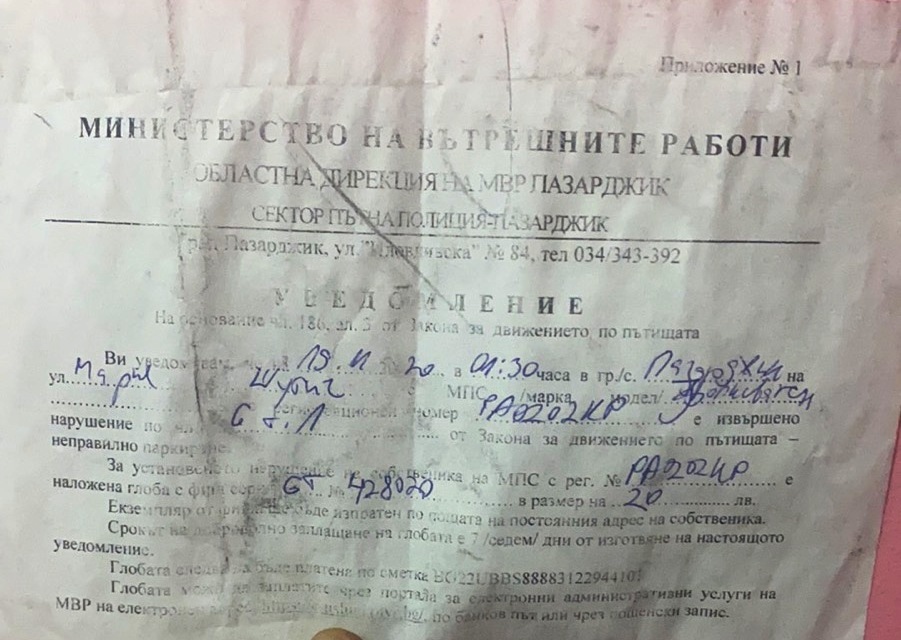 Приложение № 1
МИНИСТЕРСТВО НА ВЪТРЕШНИТЕ РАБОТИ
ОБЛАСТНА ДИРЕКЦИЯ НА МВР ПАЗАРДЖИК
СЕКТОР ПЪТНА ПОЛИЦИЯ-ПАЗАРДЖИК
Пазарджик, ул. "Пловдивска" № 84, тел 034/343-392
УВЕДОМЛЕНИЕ
На основание чл. 186, ал. 3 от Закона за движението по пътищата
Ви уведомявам, 20 в 01:30 часа в гр./с. Пазарджик на
ул. МПС /марка, модел/
номер PA0202KP е извършено
нарушение по от Закона за движението по пътищата –
неправилно паркиране.
За установеното нарушение на собственика на МПС с рег. № е
наложена глоба с фиш GT № 428020 в размер на 20 лв.
Екземпляр от фиша ще бъде изпратен по пощата на постоянния адрес на собственика.
Срокът на доброволно заплащане на глобата е 7 /седем/ дни от изготвяне на настоящото
уведомление.
Глобата следва да бъде платена по сметка
Глобата може да заплатите чрез портала за електронни административни услуги на
МВР на електронен по банков път или чрез пощенски запис.